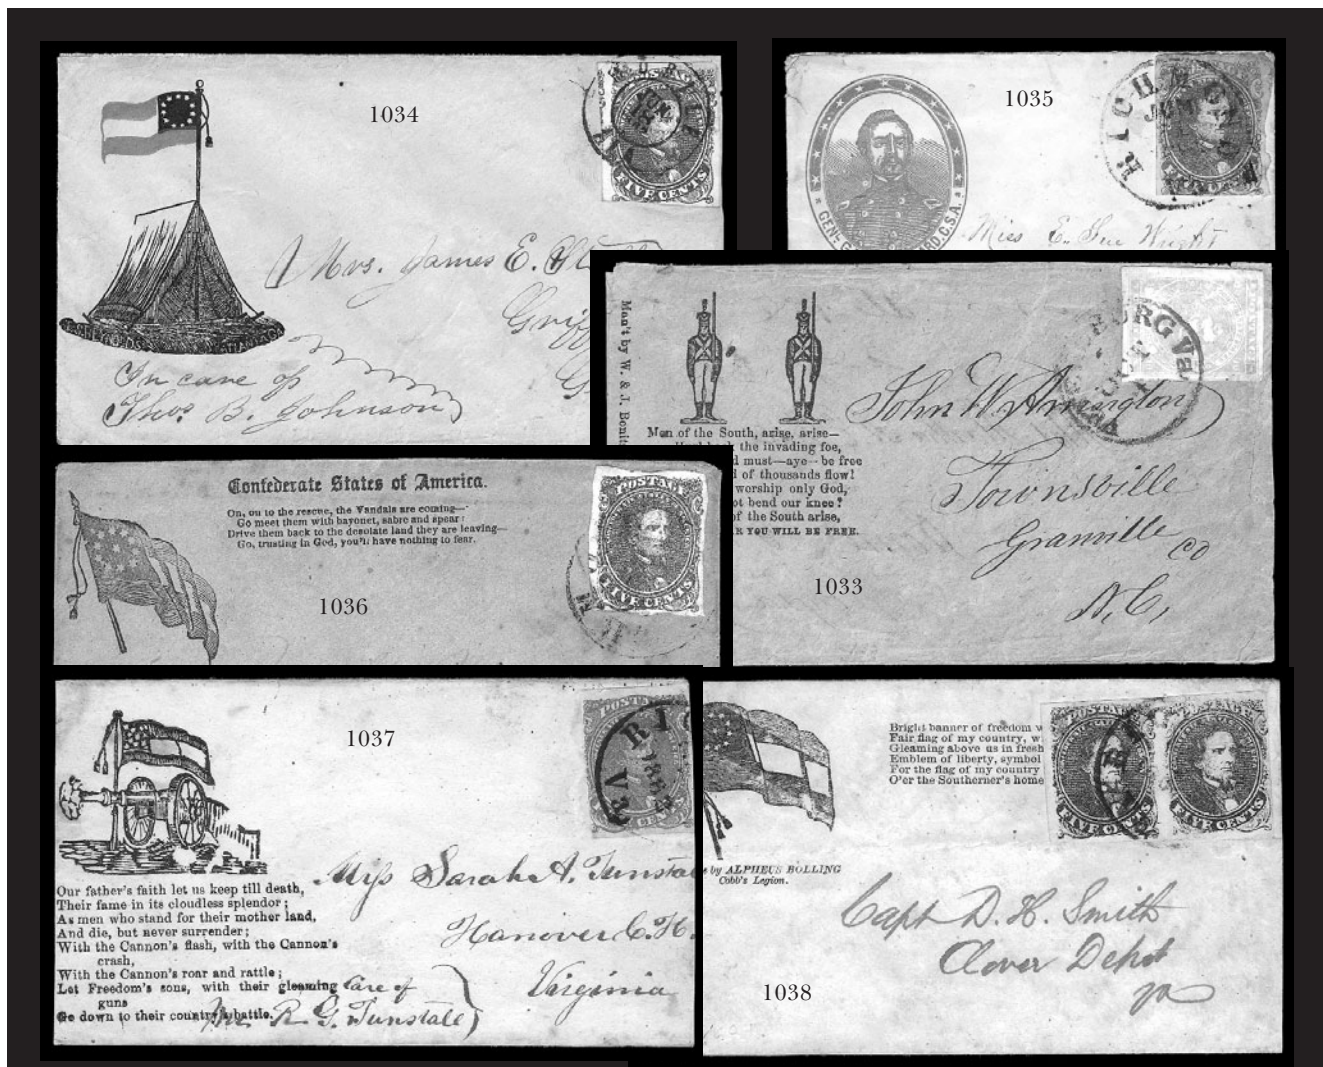 1034
FIVE CENTS
Mrs. James E.
In care of
Thos. B. Johnson
1035
RICHMOND
GEN
C.S.A.
Miss E. Sue Wright
Man't by W. & J. Bonit
BURG Va
OCT
Men of the South, arise, arise—
the invading foe,
must—aye—be free
of thousands flow!
worship only God,
bend our knee?
of the South arise,
YOU WILL BE FREE.
John W. Armington
Townsville
Granville Co
N.C.
1033
Confederate States of America.
On, on to the rescue, the Vandals are coming—
Go meet them with bayonet, sabre and spear!
Drive them back to the desolate land they are leaving—
Go, trusting in God, you'll have nothing to fear.
POSTAGE
FIVE CENTS
1036
1037
RI
1862
Va
Our father's faith let us keep till death,
Their fame in its cloudless splendor;
As men who stand for their mother land,
And die, but never surrender;
With the Cannon's flash, with the Cannon's
crash,
With the Cannon's roar and rattle;
Let Freedom's sons, with their gleaming
guns
Go down to their country's battle.
Miss Sarah A. Tunstal
Hanover C.H.
Virginia
Care of
R. G. Tunstall
Bright banner of freedom w
Fair flag of my country, w
Gleaming above us in fresh
Emblem of liberty, symbol
For the flag of my country
O'er the Southerner's home
POSTAGE
FIVE CENTS
POSTAGE
FIVE CENTS
by ALPHEUS BOLLING
Cobb's Legion.
Capt D. H. Smith
Clover Depot
Va
1038